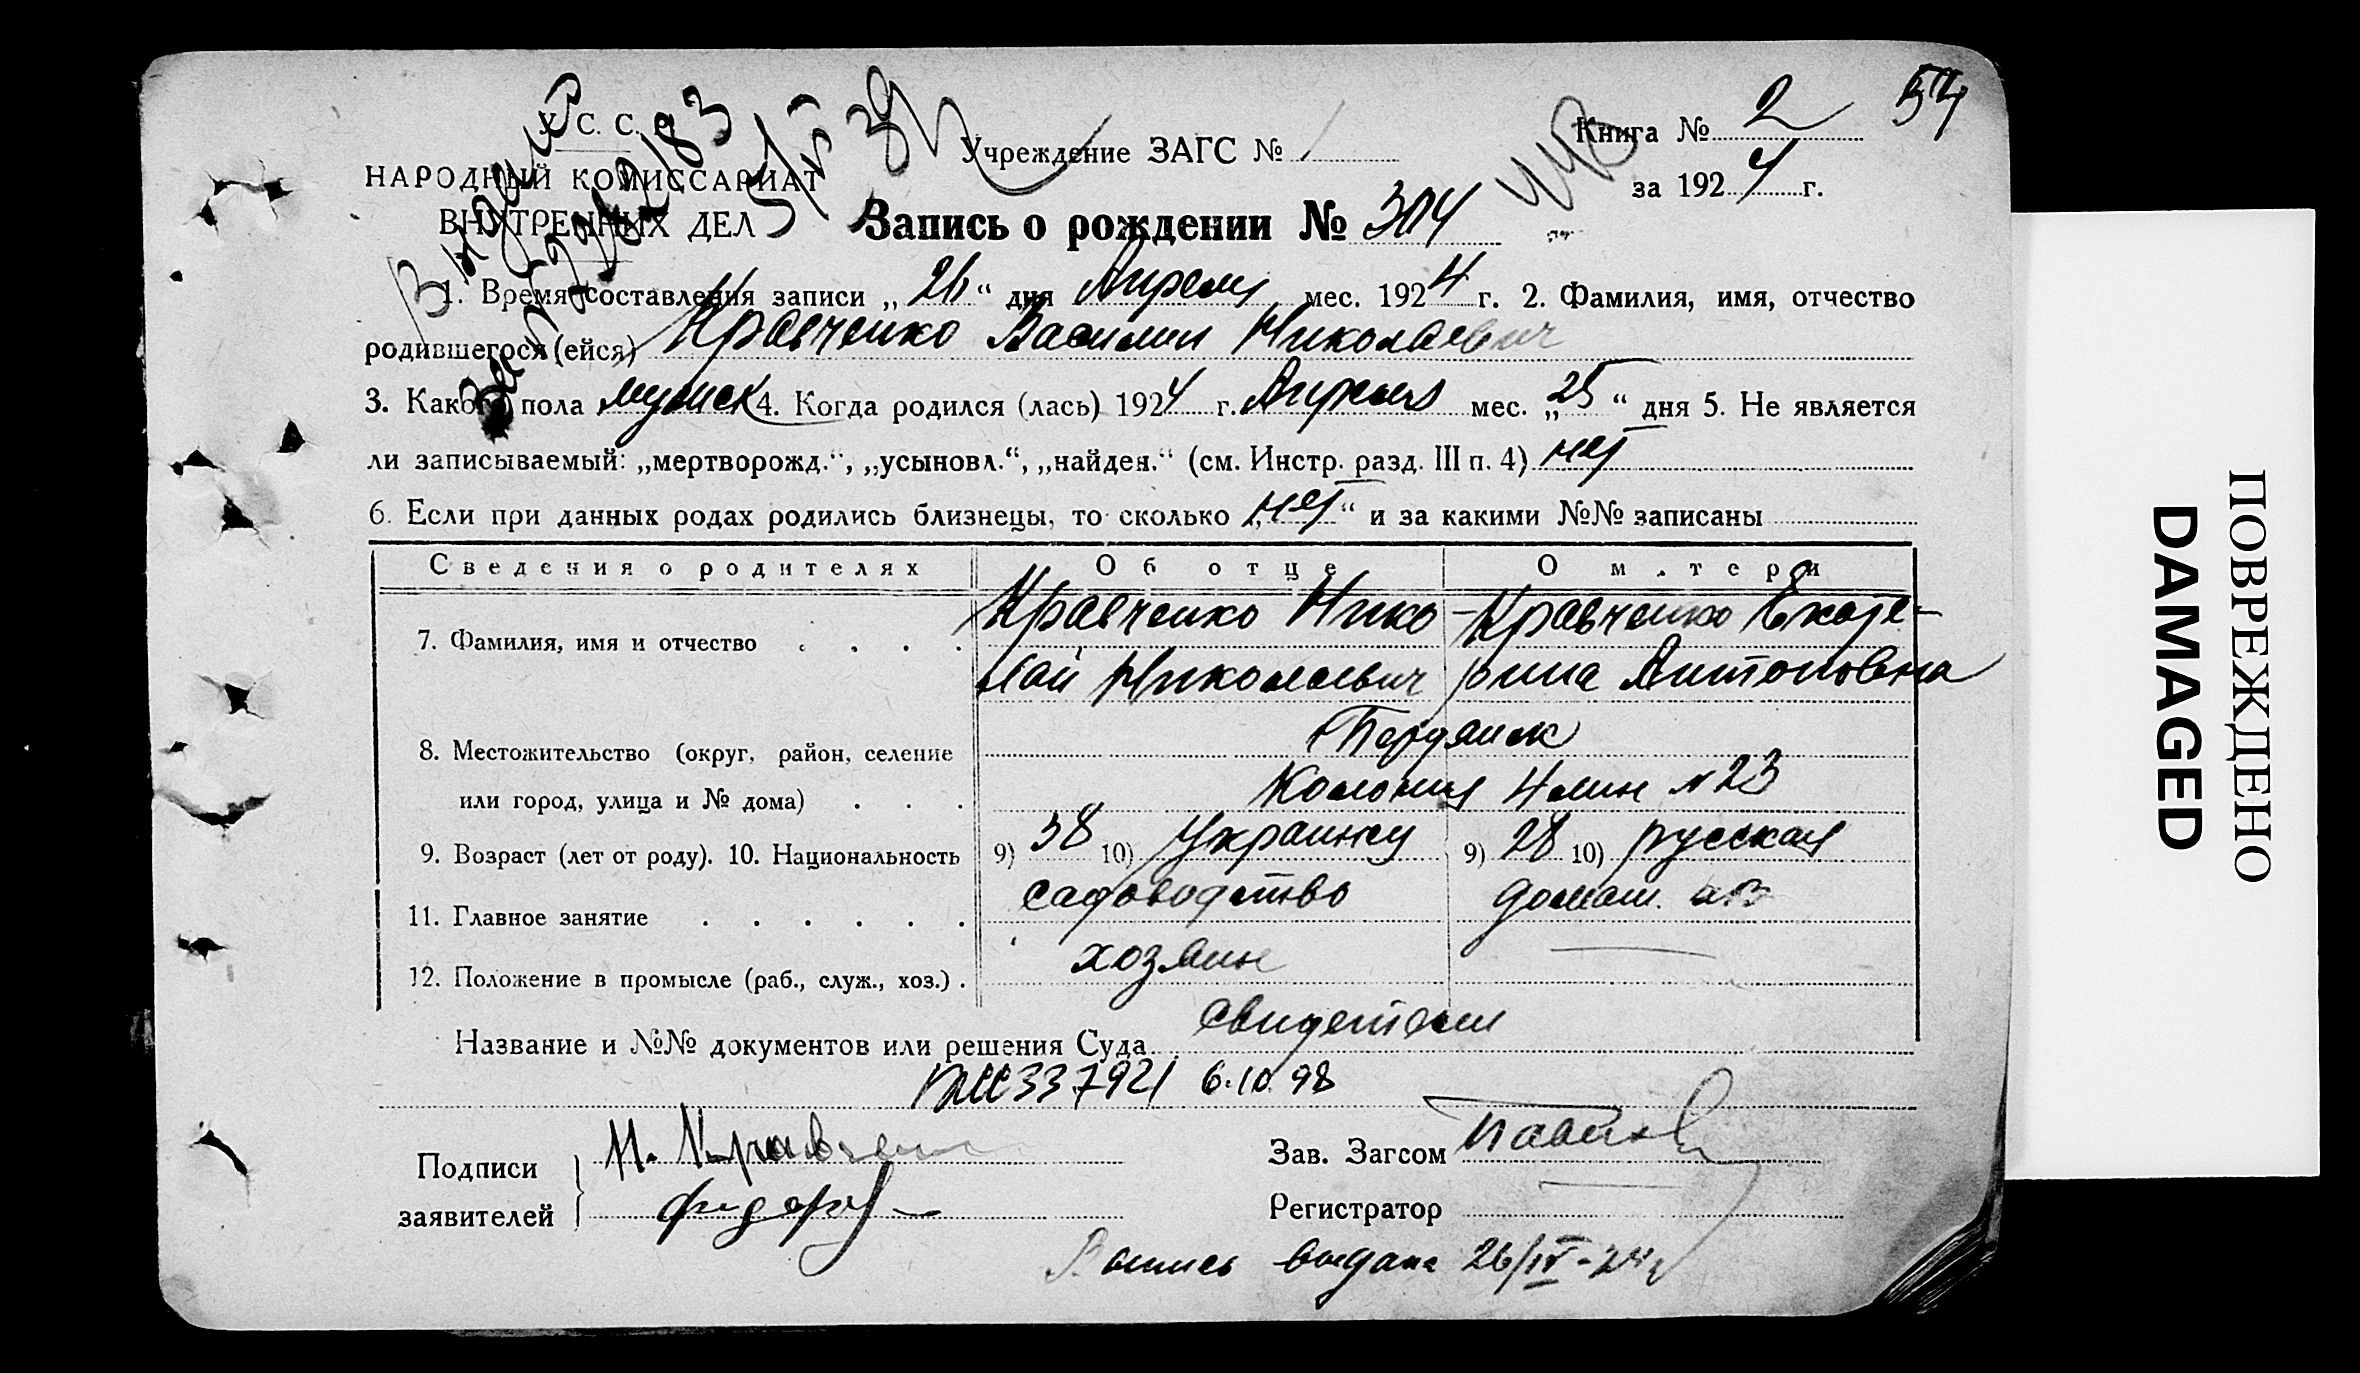 54
У. С. С. Р.
НАРОДНЫЙ КОМИССАРИАТ
ВНУТРЕННИХ ДЕЛ
Учреждение ЗАГС № 1
Книга № 2
за 1924 г.
Запись о рождении № 304
1. Время составления записи „26“ дня Апреля мес. 1924 г. 2. Фамилия, имя, отчество
родившегося (ейся) Кравченко Василий Николаевич
3. Какого пола мужск 4. Когда родился (лась) 1924 г. Апреля мес. „25“ дня 5. Не является
ли записываемый: „мертворожд.“, „усыновл.“, „найден.“ (см. Инстр. разд. III п. 4) нет
6. Если при данных родах родились близнецы, то сколько „нет“ и за какими №№ записаны
Сведения о родителях Об отце О матери
7. Фамилия, имя и отчество Кравченко Нико- Кравченко Екате-
лай Николаевич рина Антоновна
8. Местожительство (округ, район, селение Бердянск
или город, улица и № дома) Колония № 23
9. Возраст (лет от роду). 10. Национальность 9) 38 10) Украинец 9) 28 10) русская
11. Главное занятие садоводство домаш.
12. Положение в промысле (раб., служ., хоз.) хозяин —
Название и №№ документов или решения Суда свидетели
337921 6.10.98
Подписи заявителей Н. Кравченко
Зав. Загсом
Регистратор
выдана 26/IV-24г
ПОВРЕЖДЕНО
DAMAGED